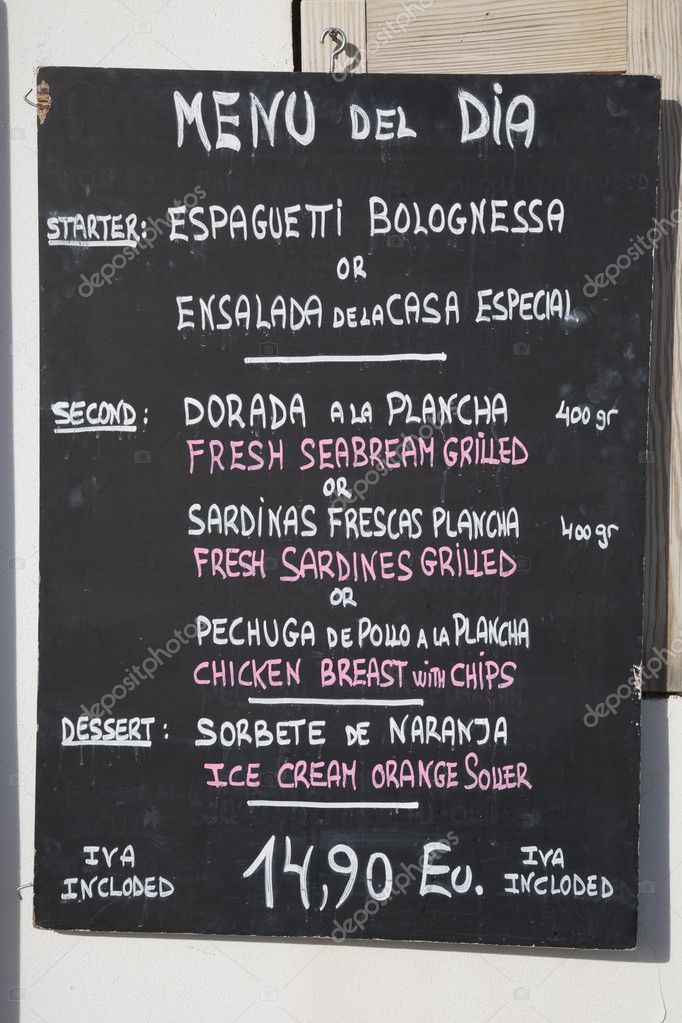 MENU DEL DIA
STARTER: ESPAGUETTI BOLOGNESSA
OR
ENSALADA DE LA CASA ESPECIAL
SECOND: DORADA A LA PLANCHA 400 gr
FRESH SEABREAM GRILLED
OR
SARDINAS FRESCAS PLANCHA 400 gr
FRESH SARDINES GRILLED
OR
PECHUGA DE POLLO A LA PLANCHA
CHICKEN BREAST WITH CHIPS
DESSERT: SORBETE DE NARANJA
ICE CREAM ORANGE SOLLER
IVA INCLODED 14,90 EU. IVA INCLODED
depositphotos
depositphotos
depositphotos
depositphotos
depositphotos
depositphotos
depositphotos
depositphotos